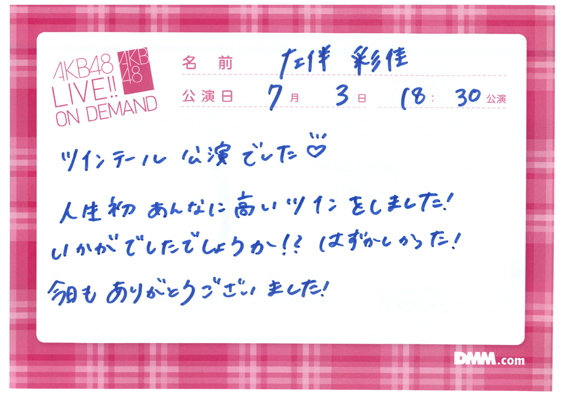 AKB48
LIVE!!
ON DEMAND
AKB
48
名前 左伴 彩佳
公演日 7月 3日 18:30公演
ツインテール 公演でした♡
人生初 あんなに高いツインをしました!
いかがでしたでしょうか!? はずかしかった!
今日もありがとうございました!
DMM.com